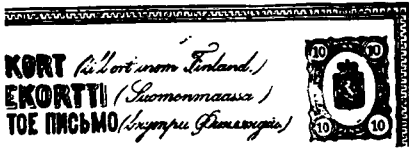 KORT (till ort inom Finland.)
EKORTTI (Suomenmaassa)
ТОЕ ПИСЬМО (внутри Финляндіи)
10 10
10 10